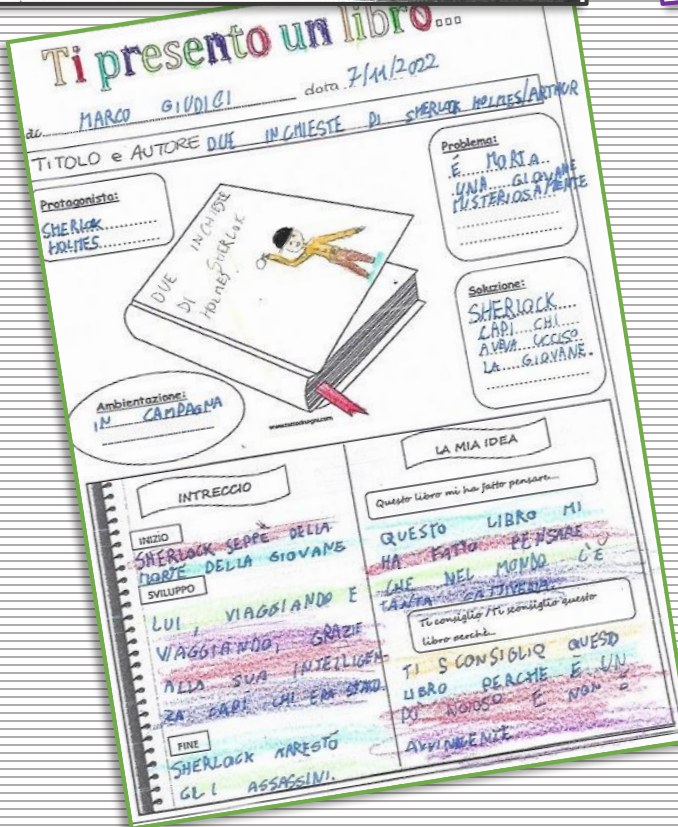 Ti presento un libro...
di MARCO GIUDICI data 7/11/2022
TITOLO e AUTORE DUE INCHIESTE DI SHERLOCK HOLMES/ARTHUR
Protagonista:
SHERLOK
HOLMES
Problema:
È MORTA
UNA GIOVANE
MISTERIOSAMENTE
DUE INCHIESTE
DI SHERLOK
HOLMES
Soluzione:
SHERLOCK
CAPÌ CHI
AVEVA UCCISO
LA GIOVANE.
Ambientazione:
IN CAMPAGNA
INTRECCIO
INIZIO
SHERLOCK SEPPE DELLA
MORTE DELLA GIOVANE
SVILUPPO
LUI, VIAGGIANDO E
VIAGGIANDO, GRAZIE
ALLA SUA INTELLIGEN-
ZA CAPÌ CHI ERA STATO.
FINE
SHERLOCK ARRESTÒ
GLI ASSASSINI.
LA MIA IDEA
Questo libro mi ha fatto pensare...
QUESTO LIBRO MI
HA FATTO PENSARE
CHE NEL MONDO C'È
TANTA CATTIVERIA.
Ti consiglio /Ti sconsiglio questo
libro perchè...
TI SCONSIGLIO QUESTO
LIBRO PERCHÈ È UN
PO' NOIOSO E NON È
AVVINCENTE